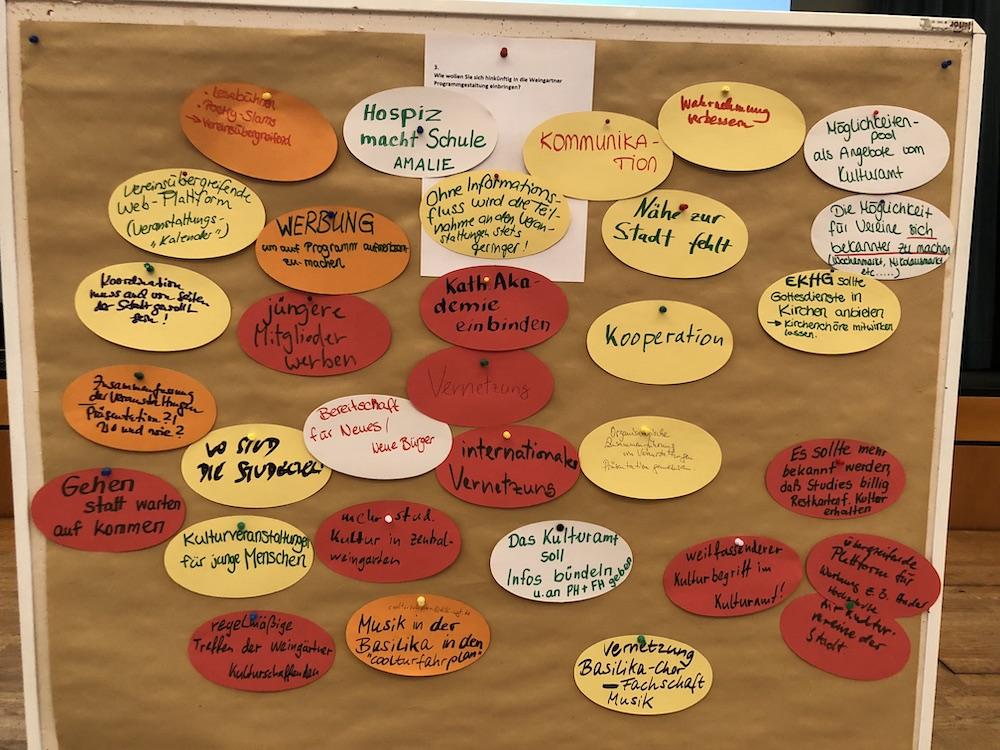 3.
Wie wollen Sie sich hinkünftig in die Weingartner
Programmgestaltung einbringen?
- Lesebühnen
- Poetry-Slams
→ Vereinsübergreifend
Hospiz
macht Schule
AMALIE
KOMMUNIKA-
TION
Wahrnehmung
verbessern
Möglichkeiten-
pool
als Angebote vom
Kulturamt
Vereinsübergreifende
Web-Plattform
(Veranstaltungs-
"Kalender")
WERBUNG
um auf Programm aufmerksam
zu machen
Ohne Informations-
fluss wird die Teil-
nahme an den Veran-
staltungen stets
geringer!
Nähe zur
Stadt fehlt
Die Möglichkeit
für Vereine sich
bekannter zu machen
(Wochenmarkt, Nikolausmarkt
etc.....)
Koordination
muss auch von Seiten
der Stadt gewollt
sein!
jüngere
Mitglieder
werben
Kath Aka-
demie
einbinden
Kooperation
EKHG sollte
Gottesdienste in
Kirchen anbieten
→ Kirchenchöre mitwirken
lassen.
Vernetzung
Zusammenfassung
der Veranstaltungen
Präsentation?!
Wo und wie?
WO SIND
DIE STUDECHEN?
Bereitschaft
für Neues/
Neue Bürger
internationale
Vernetzung
Organisatorische
Zusammenführung
von Veranstaltungen
Präsentation
Es sollte mehr
bekannt werden,
daß Studies billig
Restkarten f. Kultur
erhalten
Gehen
statt warten
auf kommen
Kulturveranstaltungen
für junge Menschen
mehr stud.
Kultur in Zentral-
weingarten
Das Kulturamt
soll
Infos bündeln
u. an PH + FH geben
weitfassenderer
Kulturbegriff im
Kulturamt!
übergreifende
Plattform für
Werbung z.B. Handel
Hochschule
für Kultur-
vereine der
Stadt
regelmäßige
Treffen der Weingartner
Kulturschaffenden
Musik in der
Basilika in den
"coolturfahrplan"
Vernetzung
Basilika-Chor
- Fachschaft
Musik